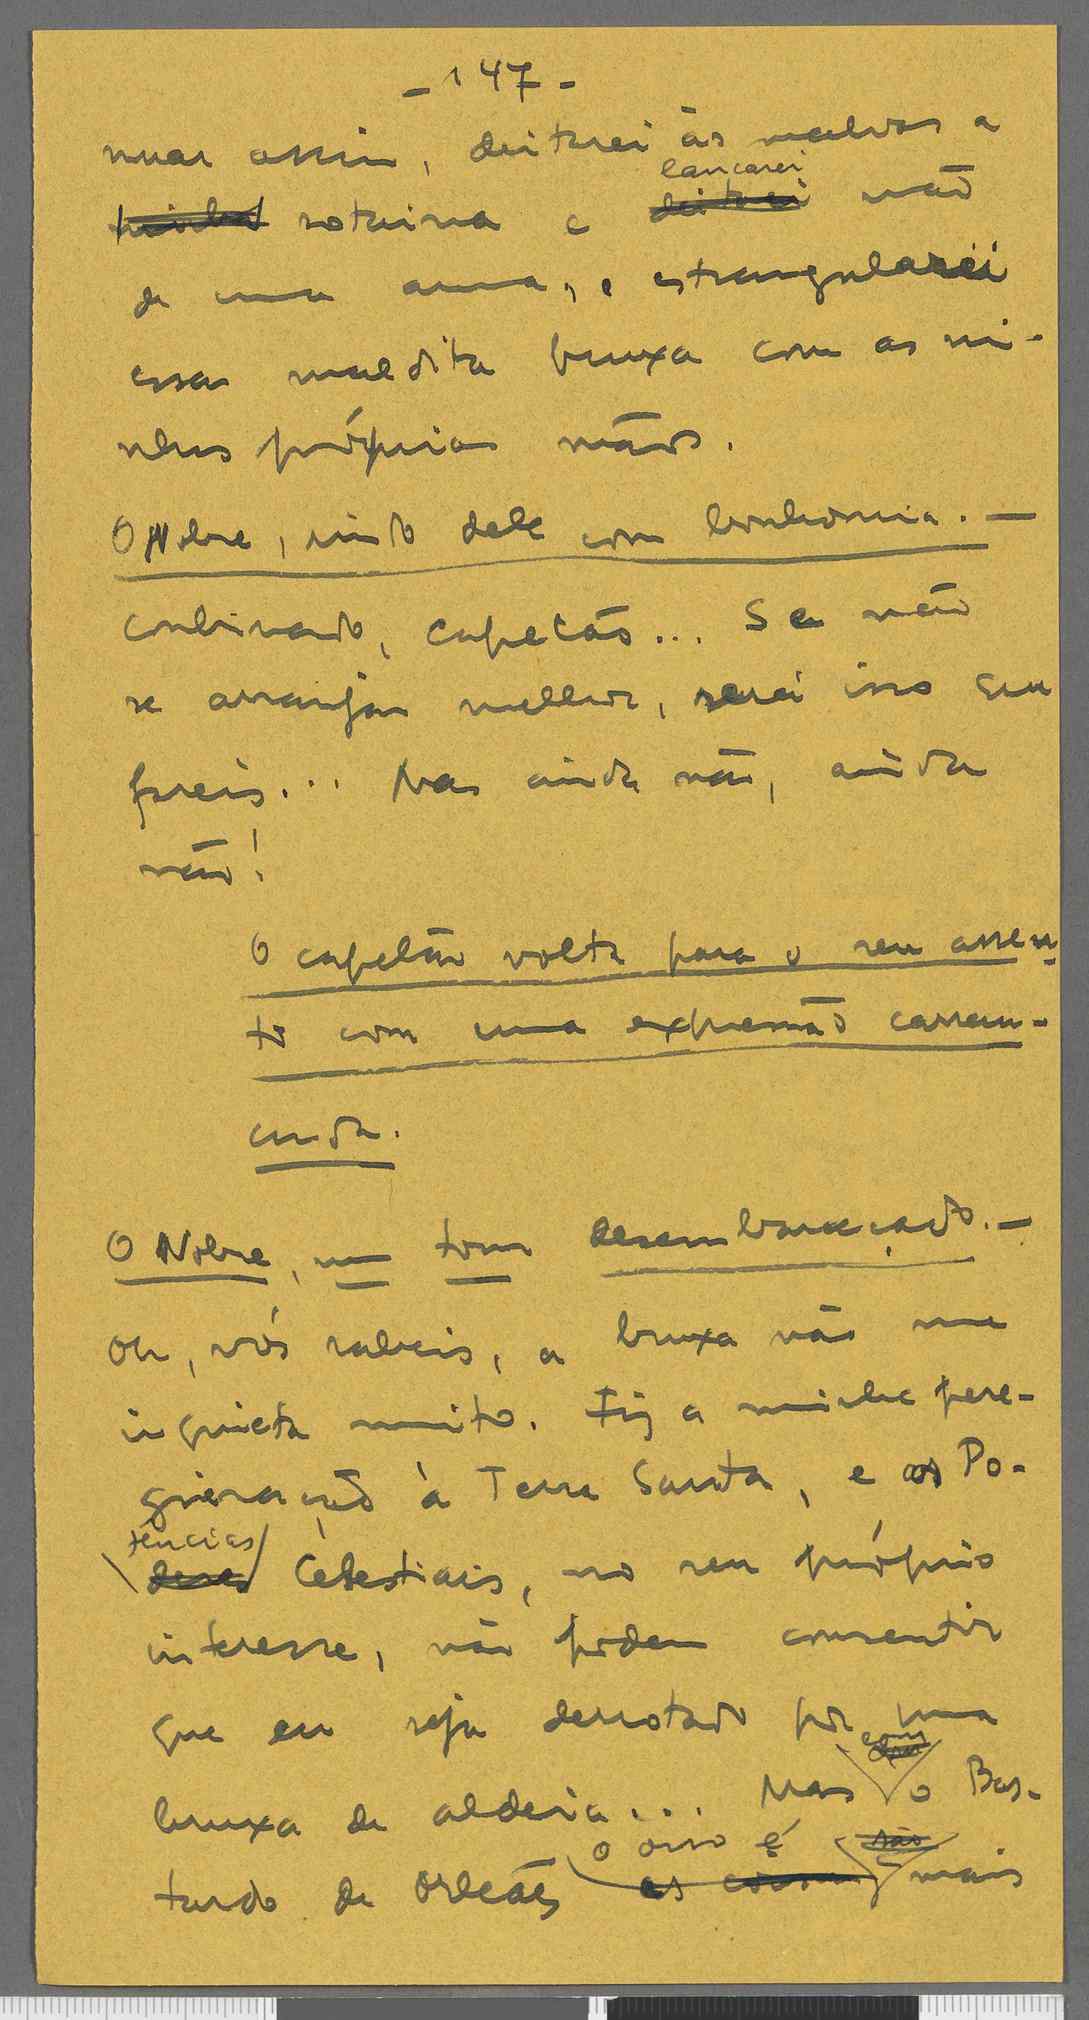 - 147 -
nuar assim, deitarei às malvas a
lançarei
minha sotaina e deitarei mão
de uma arma, e estrangularei
essa maldita bruxa com as mi-
nhas próprias mãos.
O Nobre, rindo dele com bonhomia. —
Combinado, capelão... Se não
se arranjar melhor, será isso que
fareis... Mas ainda não, ainda
não!
O capelão volta para o seu assen-
to com uma expressão carran-
cuda.
O Nobre, num tom desembaraçado. —
Oh, vós sabeis, a bruxa não me
inquieta muito. Fiz a minha pere-
grinação à Terra Santa, e as Po-
tências
deres Celestiais, no seu próprio
interesse, não podem consentir
que eu seja derrotado por uma
com
bruxa de aldeia... Mas o Bas-
o osso é são
tardo de Orleães as coisas mais